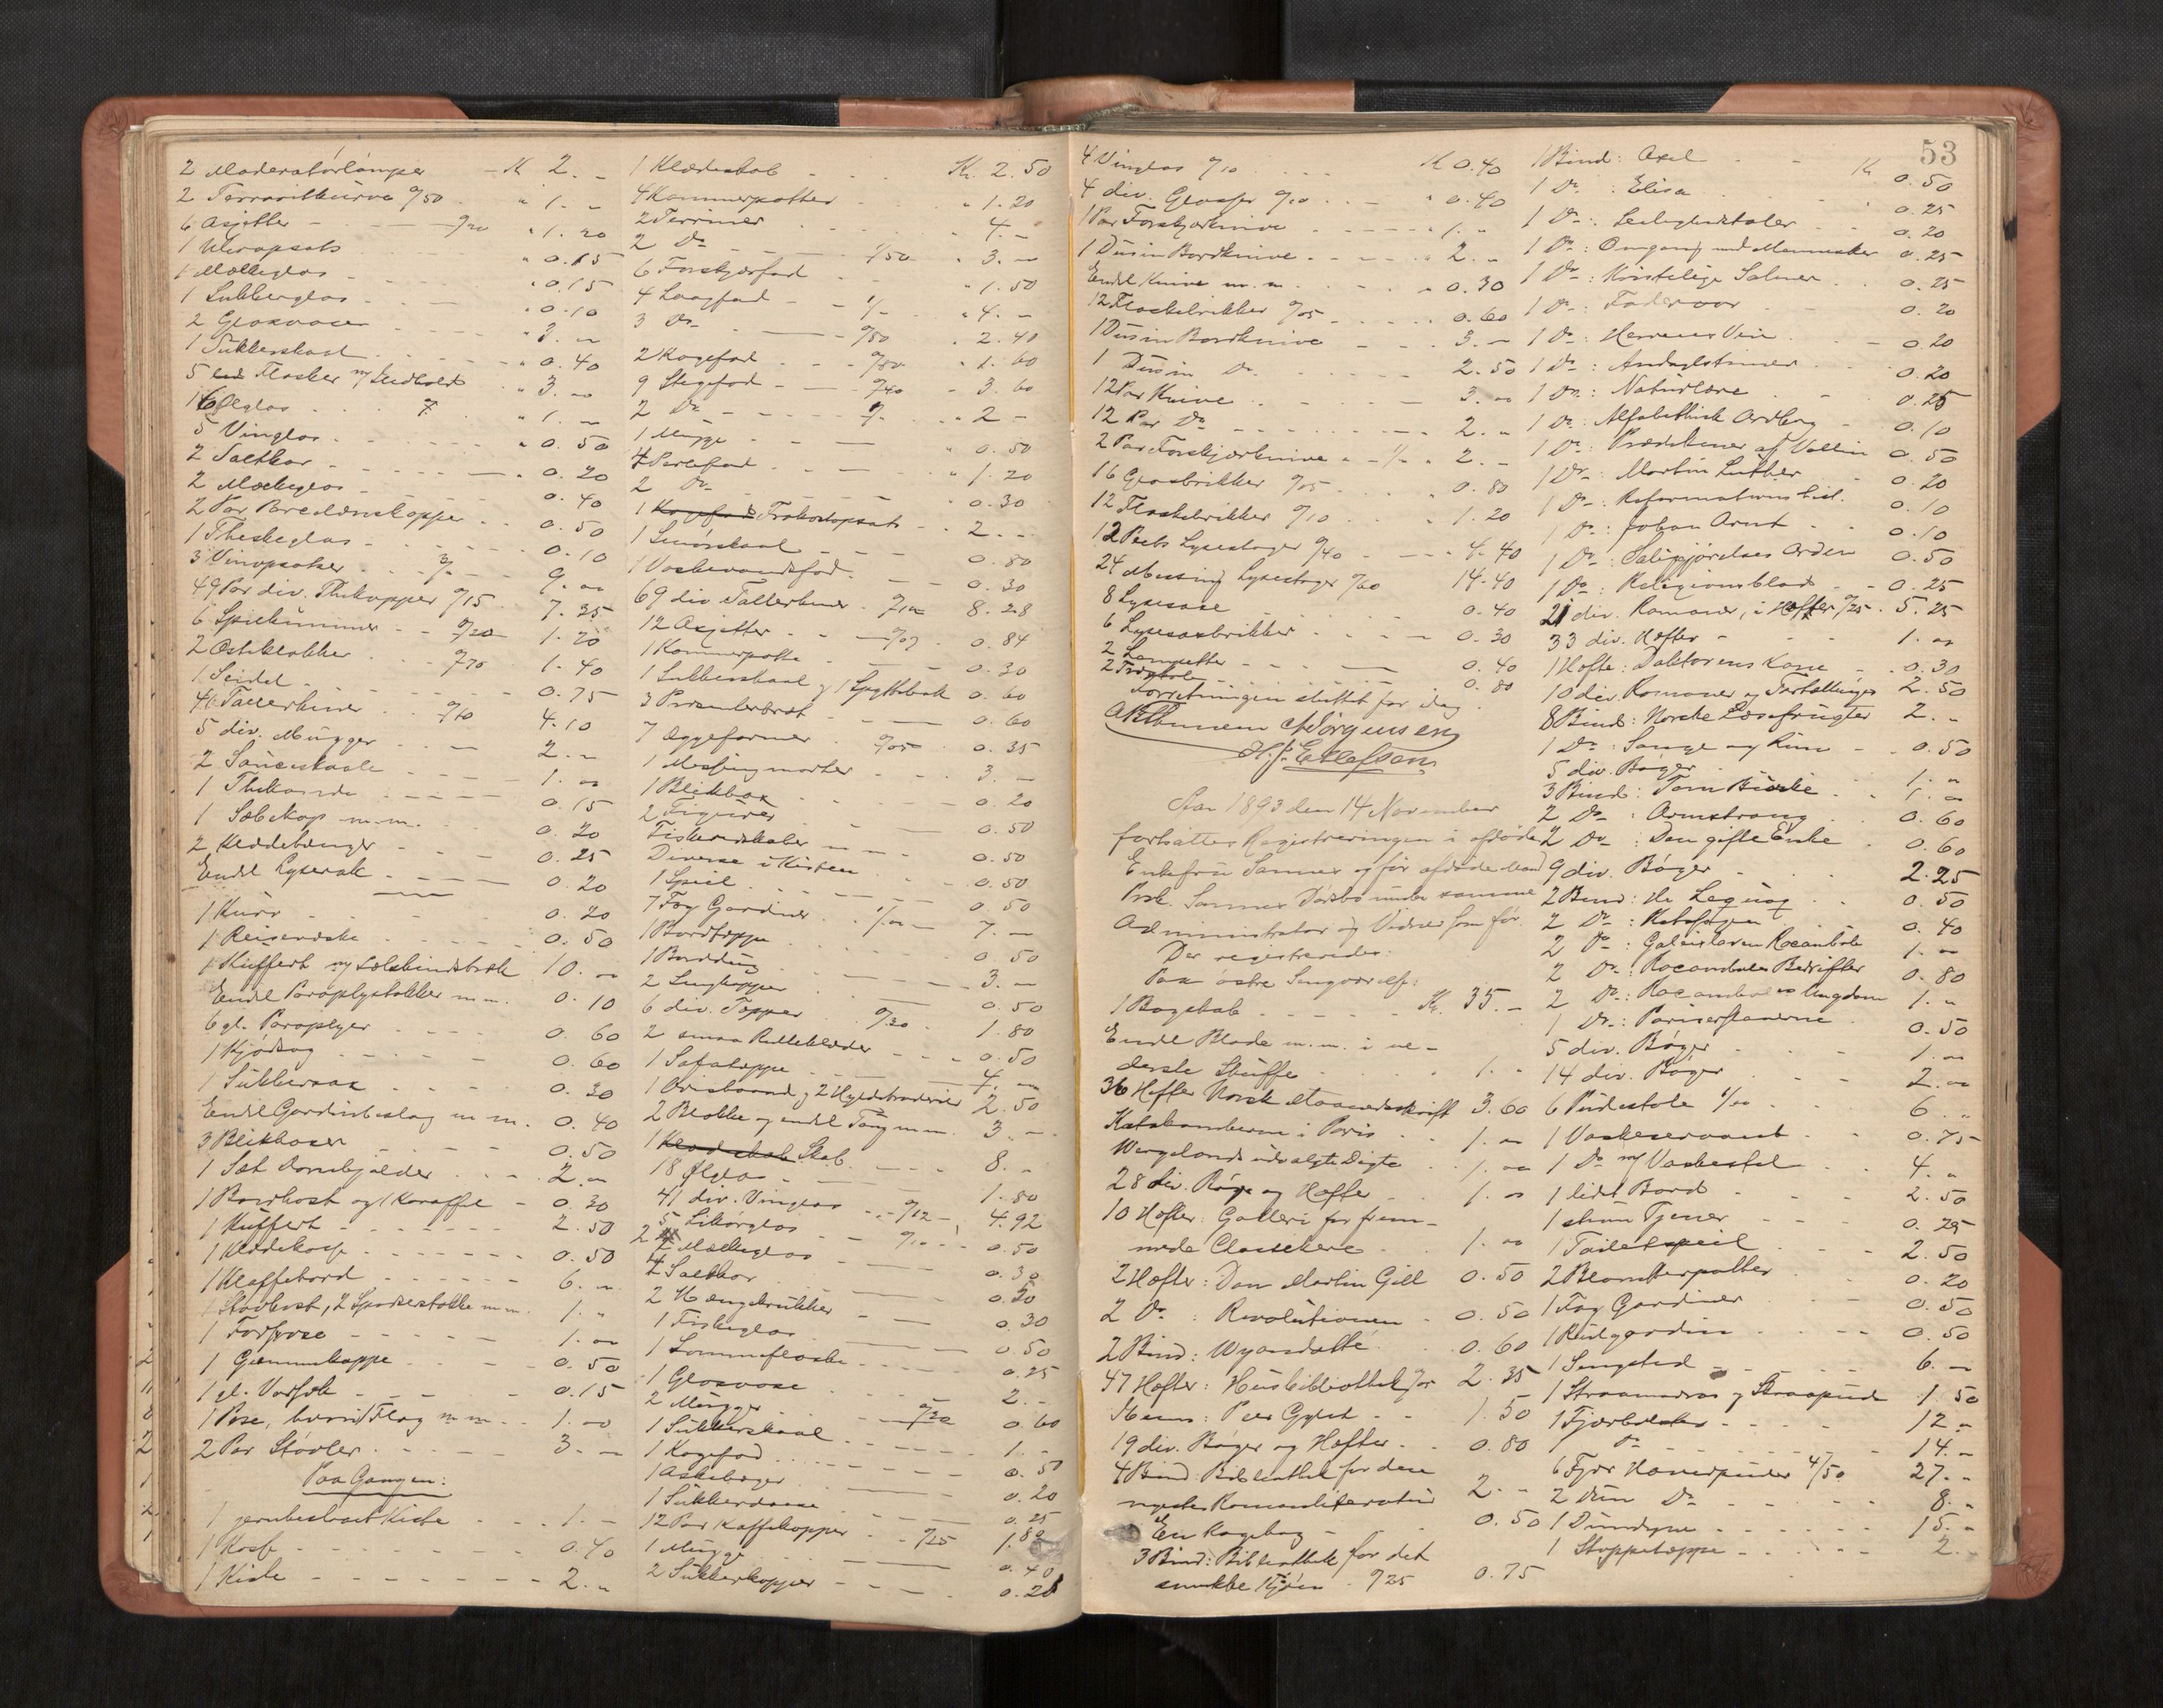 2 Moderatørlamper - Kr 2. -
2 Terrovitkurve 0/50 " 1. -
6 Asjetter - 0/20 " 1. 20
1 Uhropsats " 0. 15
1 Mælkeglas " 0. 15
1 Sukkerglas " 0. 10
2 Glasvaser " 3. -
1 Sukkerskaal " 0. 40
5 Flasker m/ Indhold " 3. -
16 Ølglas " 1. -
5 Vinglas " 0. 50
2 Saltkar 0. 20
2 Mælkeglas 0. 40
2 Par Porcelænskopper 0. 50
1 Theskeglas 0. 10
3 Vinopsatser 3/- 9. -
49 Par div. Thekopper 0/15 7. 35
6 Spilekummer 0/20 1. 20
2 Osteklokker 0/70 1. 40
1 Seidel 0. 75
41 Tallerkener 0/10 4. 10
5 div. Mugger 2. -
2 Sauceskaale 1. -
1 Thekande 0. 15
1 Sæbekop m.m. 0. 20
2 Klædebænger 0. 25
Endel Lysesak 0. 20
1 Kurv 0. 20
1 Reiseæske 0. 50
1 Kuffert m/ Sælskindstræk 10. -
Endel Paraplystokker m.m. 0. 10
6 gl. Paraplyer 0. 60
1 Kjødsag 0. 60
1 Sukkersax 0. 30
Endel Gardinbeslag m.m. 0. 40
3 Blikboxer 0. 50
1 Sæt Dombjælder 2. -
1 Bordkost og 1 Karaffel 0. 30
1 Kuffert 2. 50
1 Klædekost 0. 50
1 Klaffebord 6. -
1 Støvkost, 2 Spadserstokke m.m. 1. "
1 Fodpose 1. -
1 Gummikappe 0. 50
1 gl. Vadsæk 0. 15
1 Pose, hvori Flag m.m. 1. -
2 Par Støvler 3. -
Paa Gangen:
1 jernbeslaaet Kiste 1. -
1 Kost 0. 40
1 Kiste 2. "
1 Klædeskab Kr. 2. 50
4 Kammerpotter " 1. 20
2 Terriner 4. -
2 Do 1/50 " 3. -
6 Forskjærfad " 1. 50
4 Laagfad 1/- " 4. -
3 Do 0/80 " 2. 40
2 Kagefad 0/80 " 1. 60
9 Stegefad 0/40 " 3. 60
2 Do " 2 -
1 Mugge " 0. 50
4 Perlefad " 1. 20
2 Do 0. 30
1 Kagefad Frokostopsats 2. -
1 Smørskaal 0. 80
1 Vaskevandsfad 0. 30
69 div Tallerkener 0/12 8. 28
12 Asjetter 0/07 0. 84
1 Kammerpotte 0. 30
1 Sukkerskaal & 1 Spyttebak 0. 60
3 Præsenterbræt 0. 60
7 Æggeformer 0/05 0. 35
1 Messingmorter 3. -
1 Blikbox 0. 20
2 Figurer 0. 50
Fiskeredskaber 0. 50
Diverse i Kisten 0. 50
1 Speil 0. 50
7 Fag Gardiner 1/00 7. -
1 Bordteppe 0. 50
1 Borddug 3. -
2 Sengtepper 0. 50
6 div. Tepper 0/30 1. 80
2 smaa Rulleklæder 0. 50
1 Sofateppe 4. -
1 Avisbaand & 2 Hyldebroderier 2. 50
2 Blokke og endel Taug m.m. 3. -
1 Klædeskab Skab 8. -
18 Ølglas 1. 80
41 div. Vinglas 0/12 4. 92
5 Likørglas 0/10 0. 50
2 Mælkeglas 0. 30
4 Saltkar 0. 20
2 Hængekrukker 0. 30
1 Fiskeglas 0. 50
1 Lommeflaske 0. 25
1 Glasvase 2. -
2 Mugger 0/30 0. 60
1 Sukkerskaal 1. -
1 Kagefad 0. 50
1 Askebæger 0. 20
1 Sukkerdaase 0. 25
12 Par Kaffekopper 0/25
1 Mugge 0. 40
2 Sukkerkopper 0. 20
53
4 Vinglas 0/10 Kr 0. 40
4 div. Glasse 0/10 " 0. 40
1 Par Forskjærknive " 1. "
1 Dusin Bordknive " 2. -
Endel Knive m.m. " 0. 30
12 Flaskebrikker 0/05 0. 60
1 Dusin Bordknive 3. -
1 Dusin Do 2. 50
12 Par Knive 3. -
12 Par Do 2. "
2 Par Forskjærknive 1/- " 2. -
16 Glasbrikker 0/05 0. 80
12 Flaskebrikker 0/10 " 1. 20
Lysestager 0/40 4. 40
24 Messing Lysestager 0/60 14. 40
8 Lysesaxe 0. 40
6 Lysesaxbrikker 0. 30
2 Lampetter 0. 40
2 0. 80
Forretningen sluttet for idag.
A Klbumenn A Jørgensen
H. J. Ellefsen
Aar 1893 den 14 November
fortsattes Registreringen i afdøde
Enkefru Sannes og før afdøde Mand
Prok. Sannes Dødsbo under samme
Administrator og Vidner som før.
Der registreredes:
Paa østre Sengværelse:
1 Bogskab Kr. 35. -
Endel Blade m.m. i ne-
derste Skuffe 1. "
36 Hefter Norsk Maanedsskrift 3. 60
Katakomberne i Paris 1. -
Wergelands udvalgte Digte 1. -
28 div. Bøger og Hefter 1. -
10 Hefter: Galleri for frem-
mede Classikere 1. -
2 Hefter: Don Martin Gill 0. 50
2 Do : Revolutionen 0. 50
2 Bind: Wyandotté 0. 60
47 Hefter: Husbibliothek for 2. 35
Hjem: Peer Gynt 1. 50
19 div. Bøger og Hefter. 0. 80
4 Bind: Bibliothek for den
nyeste Romanliteratur 2. -
En Kogebog 0. 50
3 Bind: Bibliothek for det
smukke Kjøn 0/25 0. 75
1 Bind: Axel Kr 0. 50
1 Do : Elisa 0. 25
1 Do : Leilighedstaler 0. 20
1 Do : Omgang med Mennesker 0. 25
1 Do : Kristelige Salmer 0. 25
1 Do : Fadervor 0. 20
1 Do : Herrens Vin 0. 20
1 Do : Andagtstimer 0. 20
1 Do : Naturlære 0. 25
1 Do : Alfabethisk Ordbog 0. 10
1 Do : Prædikener af Vallin 0. 50
1 Do : Martin Luther 0. 20
1 Do : Reformations hist. 0. 10
1 Do : Johan Arnt 0. 10
1 Do : Saliggjørelses Orden 0. 50
1 Do : Religionsblad 0. 25
21 div. Romaner, i Hefter 0/25 5. 25
33 div. Hefter 1. -
1 Hefte: Doktorens Kone 0. 30
10 div. Romaner og Fortællinger 2. 50
8 Bind: Norske Læsefrugter 2. -
1 Do : Sange og Rim 0. 50
5 div. Bøger 1. "
3 Bind: 1. -
2 Do : Armstrong 0. 60
2 Do : Den gifte Enke 0. 60
9 div. Bøger 2. 25
2 Bind: 0. 50
2 Do : 0. 40
2 Do : Galeislaven Rocambole 1. -
2 Do : Rocamboles Bedrifter 0. 80
2 Do : Rocamboles Ungdom 1. "
1 Do : Pariserslaverne 0. 50
5 div. Bøger 1. -
14 div. Bøger 2. -
6 Pindestole 1/00 6. "
1 Vaskeservant 0. 75
1 Do m/ Vaskestel 4. "
1 lidet Bord 2. 50
1 stum Tjener 0. 25
1 Toiletspeil 2. 50
2 Blomsterpotter 0. 20
1 Fag Gardiner 0. 50
1 Rulgardin 0. 50
1 Sengsted 6. -
1 Straamadras & Straapude 1. 50
1 Fjærbolster 12. -
1 Do 14. -
6 Fjær Hovedpuder 4/50 27. -
2 Dun Do 8. "
1 Dundyne 15. "
1 Stoppeteppe 2. "